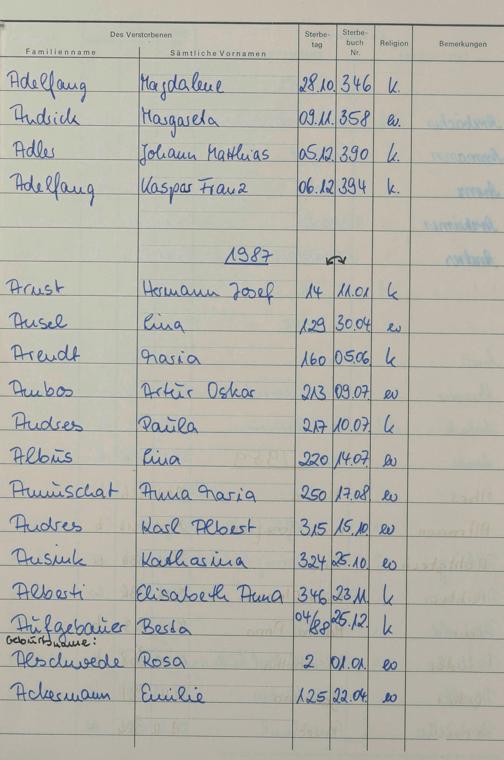 Des Verstorbenen Sterbe- Sterbe-
tag buch Religion Bemerkungen
Familienname Sämtliche Vornamen Nr.
Adelfang Magdalene 28.10. 346 k.
Andrick Margareta 09.11. 358 ev.
Adler Johann Matthias 05.12. 390 k.
Adelfang Kaspar Franz 06.12 394 k.
1987
Arnst Hermann Josef 14 11.01 k
Ansel Lina 129 30.04 ev
Arendt Maria 160 05.06 k
Ambos Artur Oskar 213 09.07. ev
Andres Paula 217 10.07. k
Albus Lina 220 14.07. ev
Annuschat Anna Maria 250 17.08 ev
Andres Karl Albert 315 15.10. ev
Ansink Katharina 324 25.10. ev
Alberti Elisabeth Anna 346 23.11. k
Aufgebauer Berta 04/88 25.12. k
Geburtsname:
Abschwede Rosa 2 01.01. ev
Ackermann Emilie 125 22.04. ev